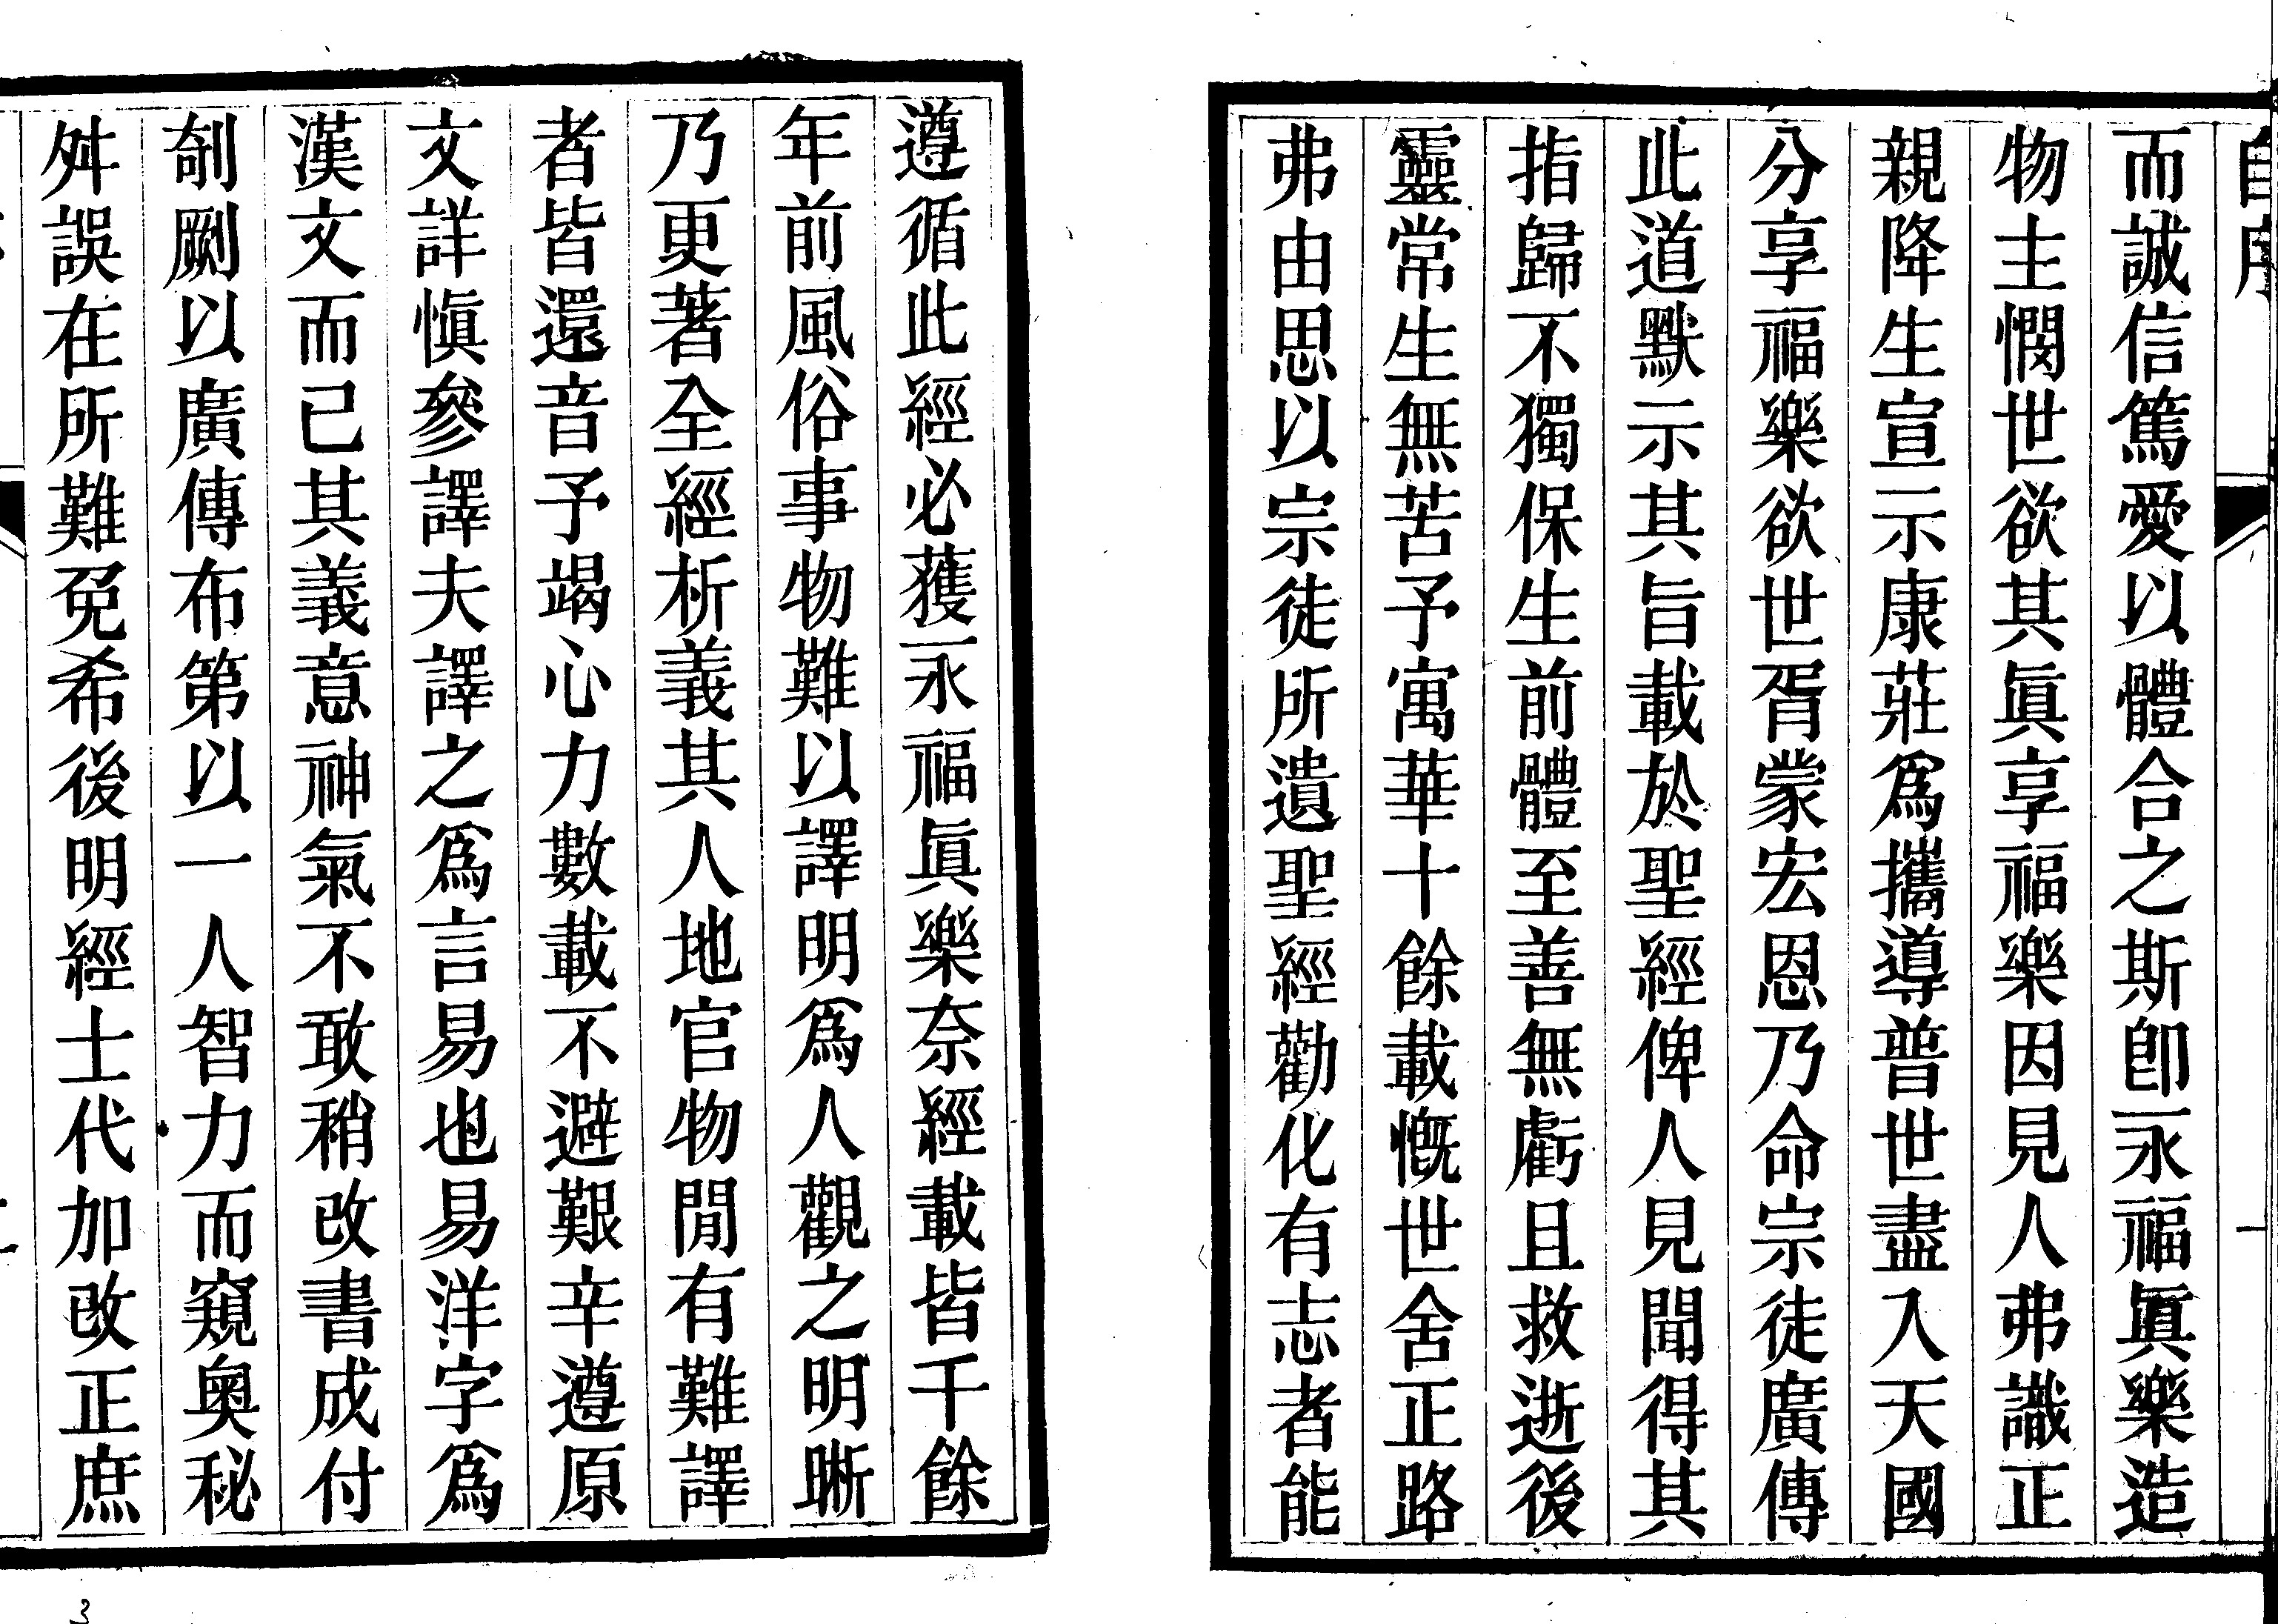 自序
一
而誠信篤愛以體合之斯卽永福眞樂造
物主憫世欲其眞享福樂因見人弗識正
親降生宣示康莊爲攜導普世盡入天國
分享福樂欲世胥蒙宏恩乃命宗徒廣傳
此道默示其旨載於聖經俾人見聞得其
指歸不獨保生前體至善無虧且救逝後
靈常生無苦予寓華十餘載慨世舍正路
弗由思以宗徒所遺聖經勸化有志者能
遵循此經必獲永福眞樂奈經載皆千餘
年前風俗事物難以譯明爲人觀之明晰
乃更著全經析義其人地官物閒有難譯
者皆還音予竭心力數載不避艱辛遵原
文詳愼參譯夫譯之爲言易也易洋字爲
漢文而已其義意神氣不敢稍改書成付
剞劂以廣傳布第以一人智力而窺奧秘
舛誤在所難免希後明經士代加改正庶
3